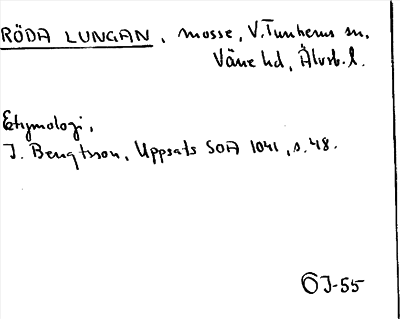 RÖDA LUNGAN, mosse, V. Tunhems sn,
Väne hd, Älvsb. l.
Etymologi,
J. Bengtsson, Uppsats SOA 1041, s. 48.
ÖJ-55